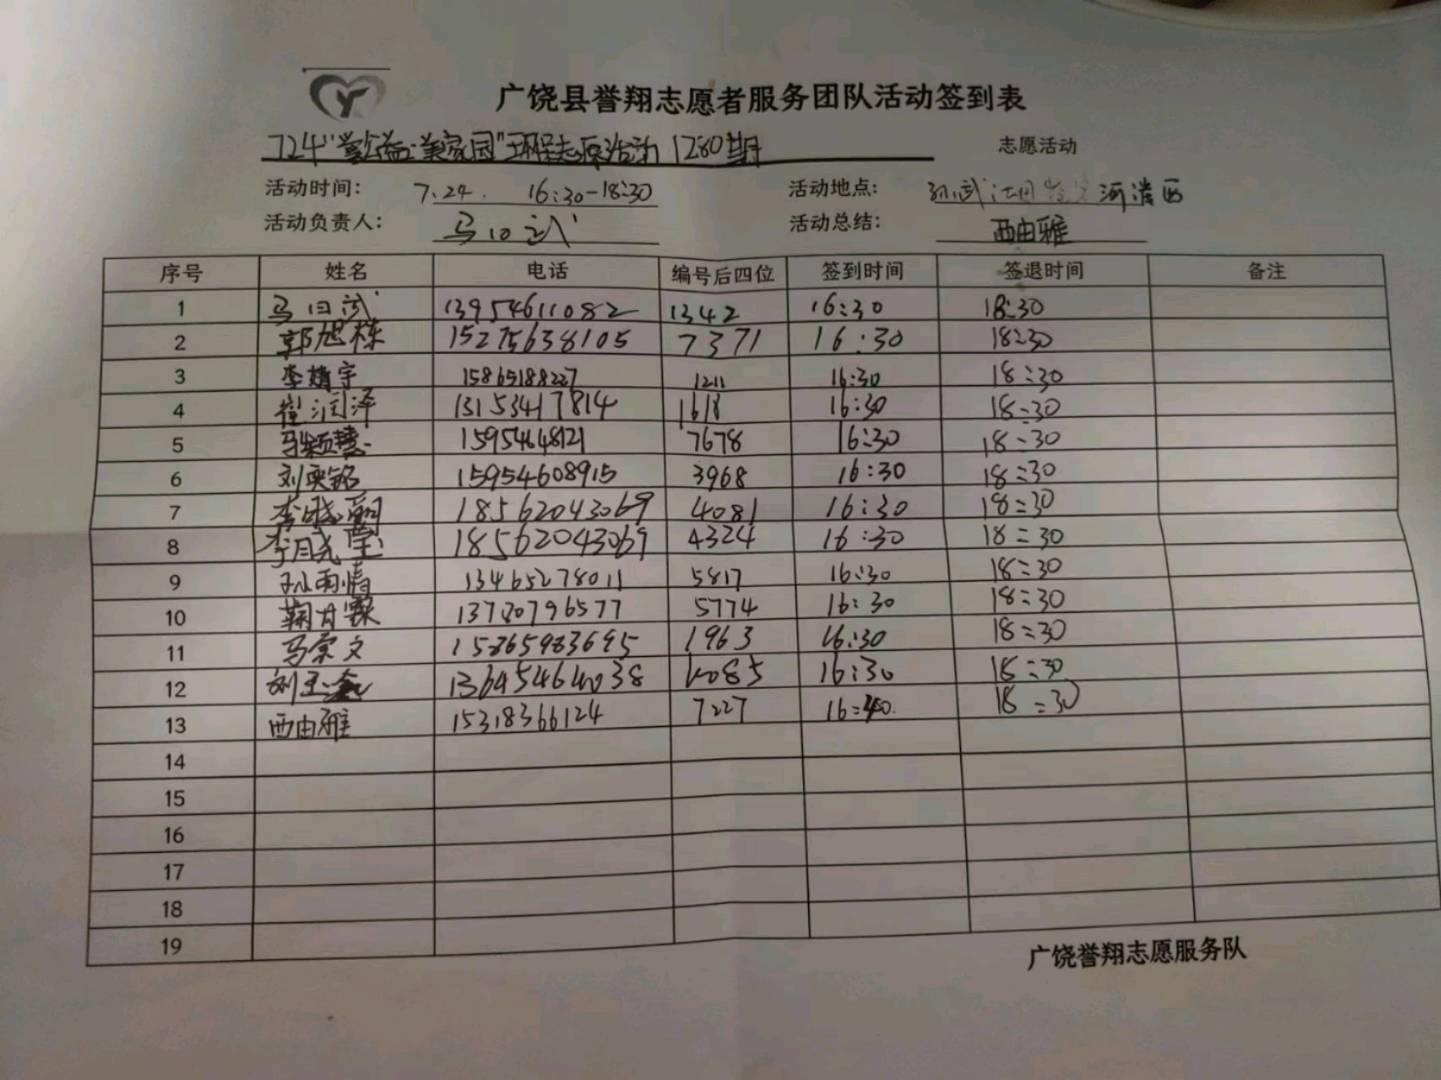 广饶县誉翔志愿者服务团队活动签到表
724"公益·美家园"环保志愿活动1280期 志愿活动
活动时间： 7:24. 16:30-18:30 活动地点： 孙武 河滩西
活动负责人： 马日武 活动总结： 西由雅
序号 姓名 电话 编号后四位 签到时间 签退时间 备注
1 马日武 13954611082 1342 16:30 18:30
2 郭旭栋 15275638105 7371 16:30 18:30
3 李婧宇 15865188227 1211 16:30 18:30
4 崔润泽 13153417814 1618 16:30 18:30
5 马颖慧 15954648121 7678 16:30 18:30
6 刘奕铭 15954608915 3968 16:30 18:30
7 李晓 18562043069 4081 16:30 18:30
8 李 18562043069 4324 16:30 18:30
9 孙雨情 13465278011 5817 16:30 18:30
10 鞠月霖 13780796577 5774 16:30 18:30
11 马荣文 15865983695 1963 16:30 18:30
12 刘玉鑫 13645464038 16:30 18:30
13 西由雅 15318366124 7227 18:30
14
15
16
17
18
19
广饶誉翔志愿服务队